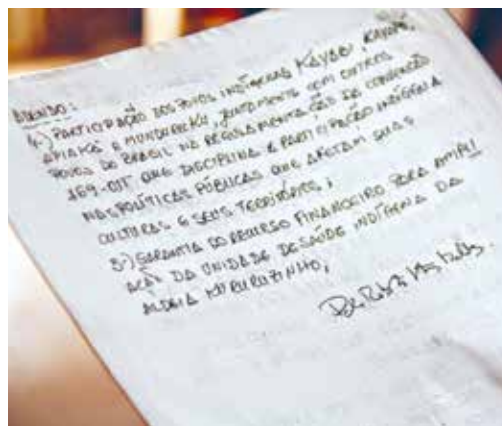 ADENDO:
4-) PARTICIPAÇÃO DOS POVOS INDÍGENAS KAYABI,
APIAKÁ E MUNDURUKU, JUNTAMENTE COM OUTROS
POVOS DO BRASIL NA REGULAMENTAÇÃO DA CONVENÇÃO
169-OIT QUE DISCIPLINA A PARTICIPAÇÃO INDÍGENA
NAS POLÍTICAS PÚBLICAS QUE AFETAM SUAS
CULTURAS E SEUS TERRITÓRIOS;
5-) GARANTIA DO RECURSO FINANCEIRO PARA AMPLI
AÇÃO DA UNIDADE DE SAÚDE INDÍGENA DA
ALDEIA KURURUZINHO;